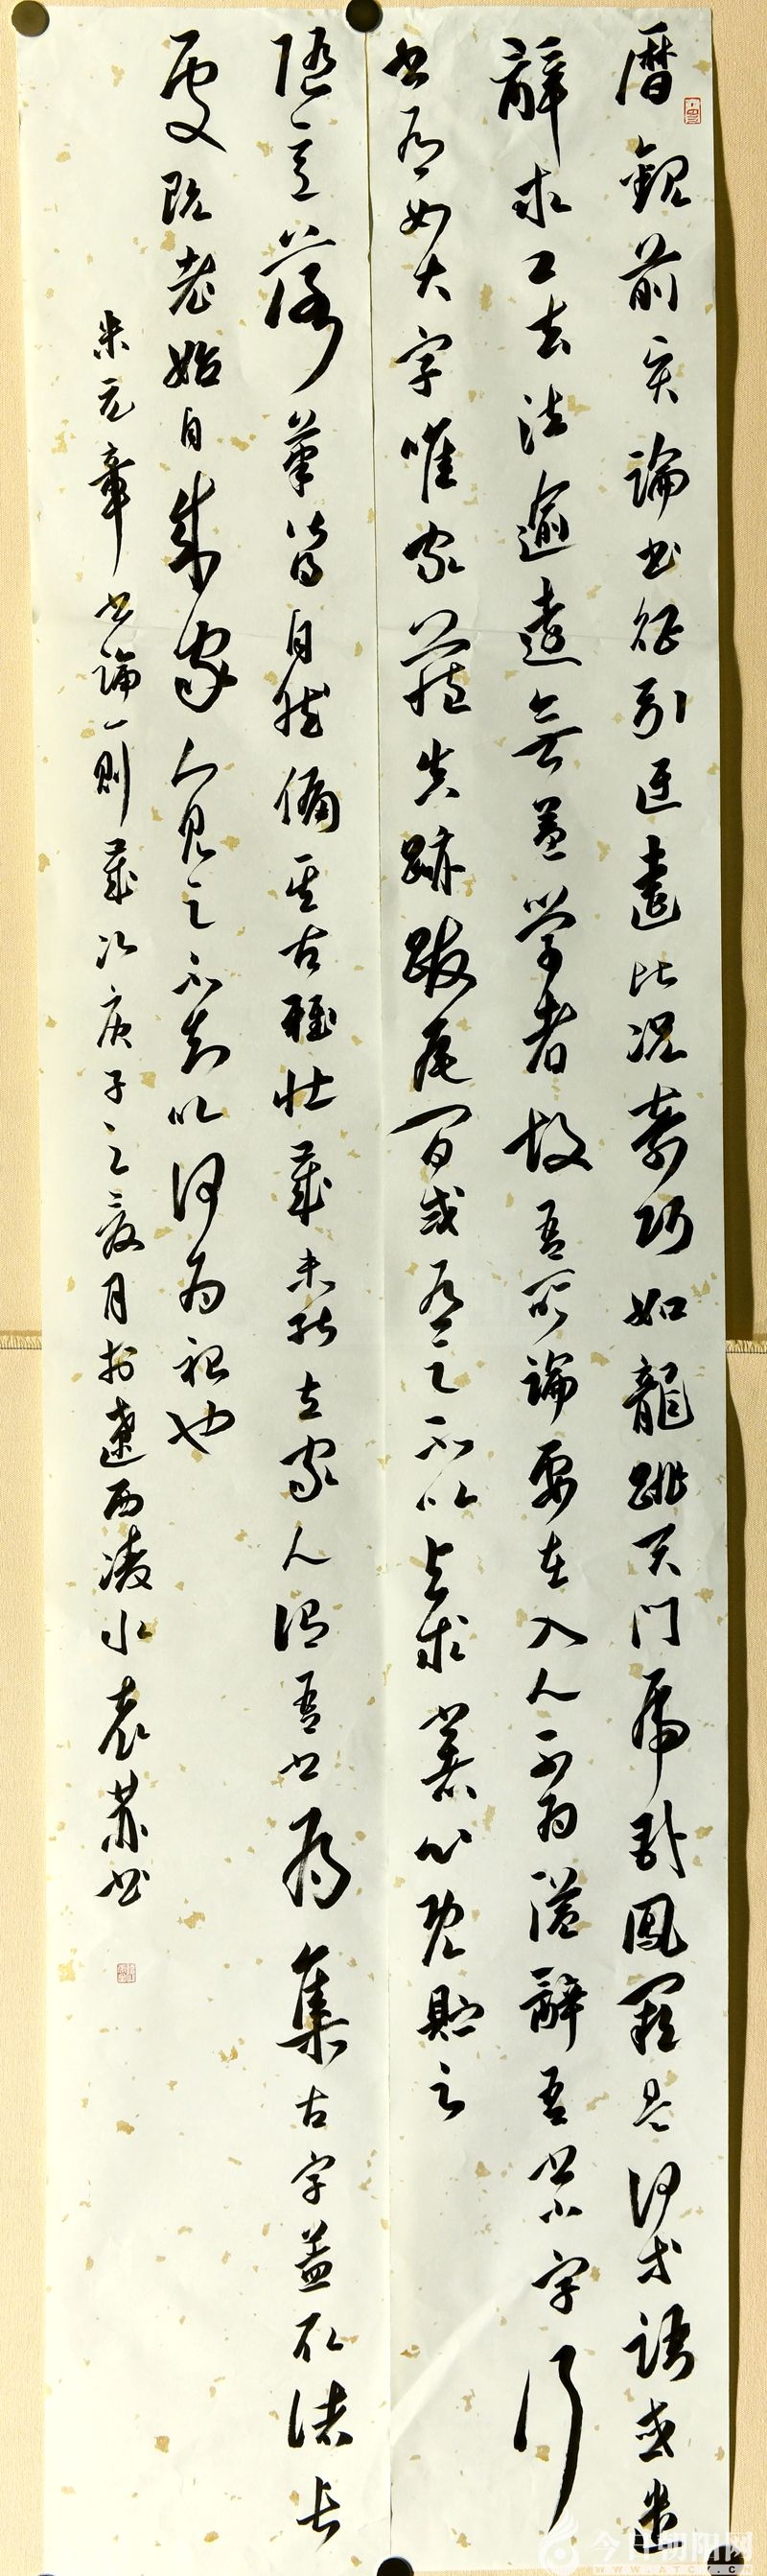 曆觀前賢論書征引迂遠比況奇巧如龍跳天門虎卧鳳闕是何等語或遣
辭求工去法逾遠無益學者故吾所論要在入人不為溢辭吾書小字行
書有如大字唯家藏真跡跋尾間或有之不以与求書者心既貯之
隨意落筆皆自然備其古雅壯歲未能立家人謂吾書為集古字蓋取諸長
處既老始自成家人見之不知以何為祖也
米元章書論一則歲次庚子之夏月於遼西凌水袁書
今日朝阳网